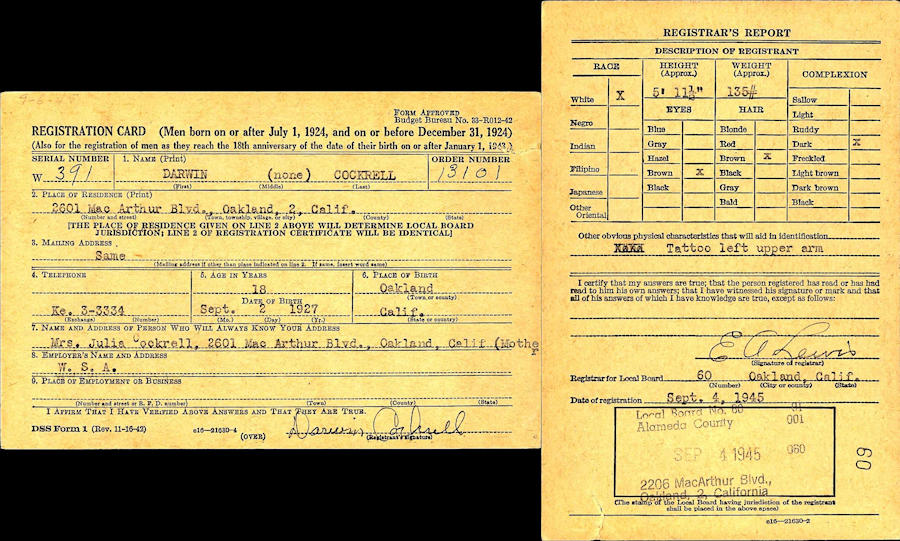 9-6-45
FORM APPROVED
Budget Bureau No. 33-R012-42
REGISTRATION CARD (Men born on or after July 1, 1924, and on or before December 31, 1924)
(Also for the registration of men as they reach the 18th anniversary of the date of their birth on or after January 1, 1943.)
SERIAL NUMBER 1. NAME (Print) ORDER NUMBER
W 391 DARWIN (none) COCKRELL 13101
(First) (Middle) (Last)
2. PLACE OF RESIDENCE (Print)
2601 Mac Arthur Blvd., Oakland, 2, Calif.
(Number and street) (Town, township, village, or city) (County) (State)
[THE PLACE OF RESIDENCE GIVEN ON LINE 2 ABOVE WILL DETERMINE LOCAL BOARD
JURISDICTION; LINE 2 OF REGISTRATION CERTIFICATE WILL BE IDENTICAL]
3. MAILING ADDRESS
Same
(Mailing address if other than place indicated on line 2. If same, insert word same)
4. TELEPHONE 5. AGE IN YEARS 6. PLACE OF BIRTH
18 Oakland
DATE OF BIRTH (Town or county)
Ke. 3-3334 Sept. 2 1927 Calif.
(Exchange) (Number) (Mo.) (Day) (Yr.) (State or country)
7. NAME AND ADDRESS OF PERSON WHO WILL ALWAYS KNOW YOUR ADDRESS
Mrs. Julia Cockrell, 2601 Mac Arthur Blvd., Oakland, Calif (Mother
8. EMPLOYER'S NAME AND ADDRESS
W. S. A.
9. PLACE OF EMPLOYMENT OR BUSINESS
(Number and street or R. F. D. number) (Town) (County) (State)
I AFFIRM THAT I HAVE VERIFIED ABOVE ANSWERS AND THAT THEY ARE TRUE.
DSS Form 1 (Rev. 11-16-42) c16—21630-4 (OVER) Darwin Cockrell
(Registrant's signature)
REGISTRAR'S REPORT
DESCRIPTION OF REGISTRANT
RACE HEIGHT (Approx.) WEIGHT (Approx.) COMPLEXION
White X 5' 11½" 135# Sallow
EYES HAIR Light
Negro Blue Blonde Ruddy
Indian Gray Red Dark X
Hazel Brown X Freckled
Filipino Brown X Black Light brown
Japanese Black Gray Dark brown
Other Oriental Bald Black
Other obvious physical characteristics that will aid in identification
Tattoo left upper arm
I certify that my answers are true; that the person registered has read or has had
read to him his own answers; that I have witnessed his signature or mark and that
all of his answers of which I have knowledge are true, except as follows:
E A Lewis
(Signature of registrar)
Registrar for Local Board 60 Oakland, Calif.
(Number) (City or county) (State)
Date of registration Sept. 4, 1945
Local Board No. 60 01
Alameda County 001
SEP 4 1945 060
2206 MacArthur Blvd.,
Oakland, 2, California
(The stamp of the Local Board having jurisdiction of the registrant
shall be placed in the above space)
c16—21630-2
60